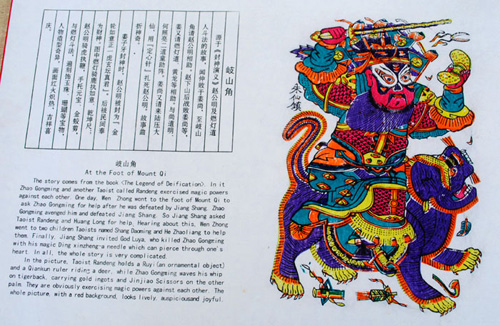 岐山角
源于《封神演义》赵公明及燃灯道
人斗法的故事。闻仲败于姜尚,至岐山
角请赵公明相助,赵下山后战败姜尚等。
姜又请燃灯、黄龙等相助,
二道童助阵。姜尚又请来陆压大
仙,用“定心针”扎死赵公明。故事曲
折神奇。
姜子牙封神时,赵公明被封为“金
轮如意正一虎玄坛真君”,后被民间奉
为财神。图中燃灯骑鹿执如意、乾坤尺,
赵公明骑虎执鞭,手托元宝、金蛟剪,
与燃灯斗法。珊瑚等宝物。
人物造型奇美,画面红火炽热,吉祥喜
庆。
岐山角
At the Foot of Mount Qi
The story comes from the book <The Legend of Deification>. In it
Zhao Gongming and another Taoist called Randeng exercised magic powers
against each other. One day, Wen Zhong went to the foot of Mount Qi to
ask Zhao Gongming for help after he was defeated by Jiang Shang. Zhao
Gongming avenged him and defeated Jiang Shang. So Jiang Shang asked
Taoist Randeng and Huang Long for help. Hearing about this, Wen Zhong
went to two children Taoists named Shang Daoming and He Zhaoliang to help
them. Finally, Jiang Shang invited God Luya, who killed Zhao Gongming
with his magic Ding xinzheng(a needle which can pierce through one's
heart. In all, the whole story is very complicated.
In the picture, Taoist Randeng holds a Ruyi (an ornamental object)
and a Qiankun ruler riding a deer, while Zhao Gongming waves his whip
on tigerback, carrying gold ingots and Jinjiao Scissors on the other
palm. They are obviously exercising magic powers against each other. The
whole picture, with a red background, looks lively, auspicious and joyful.
朱仙镇